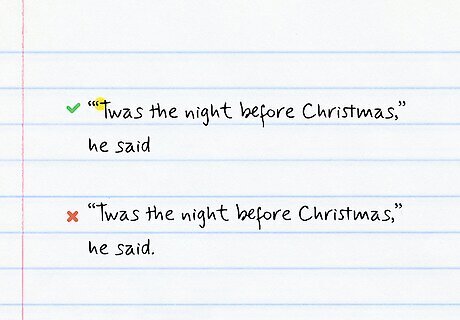 “‘Twas the night before Christmas,”
he said
“Twas the night before Christmas,”
he said.